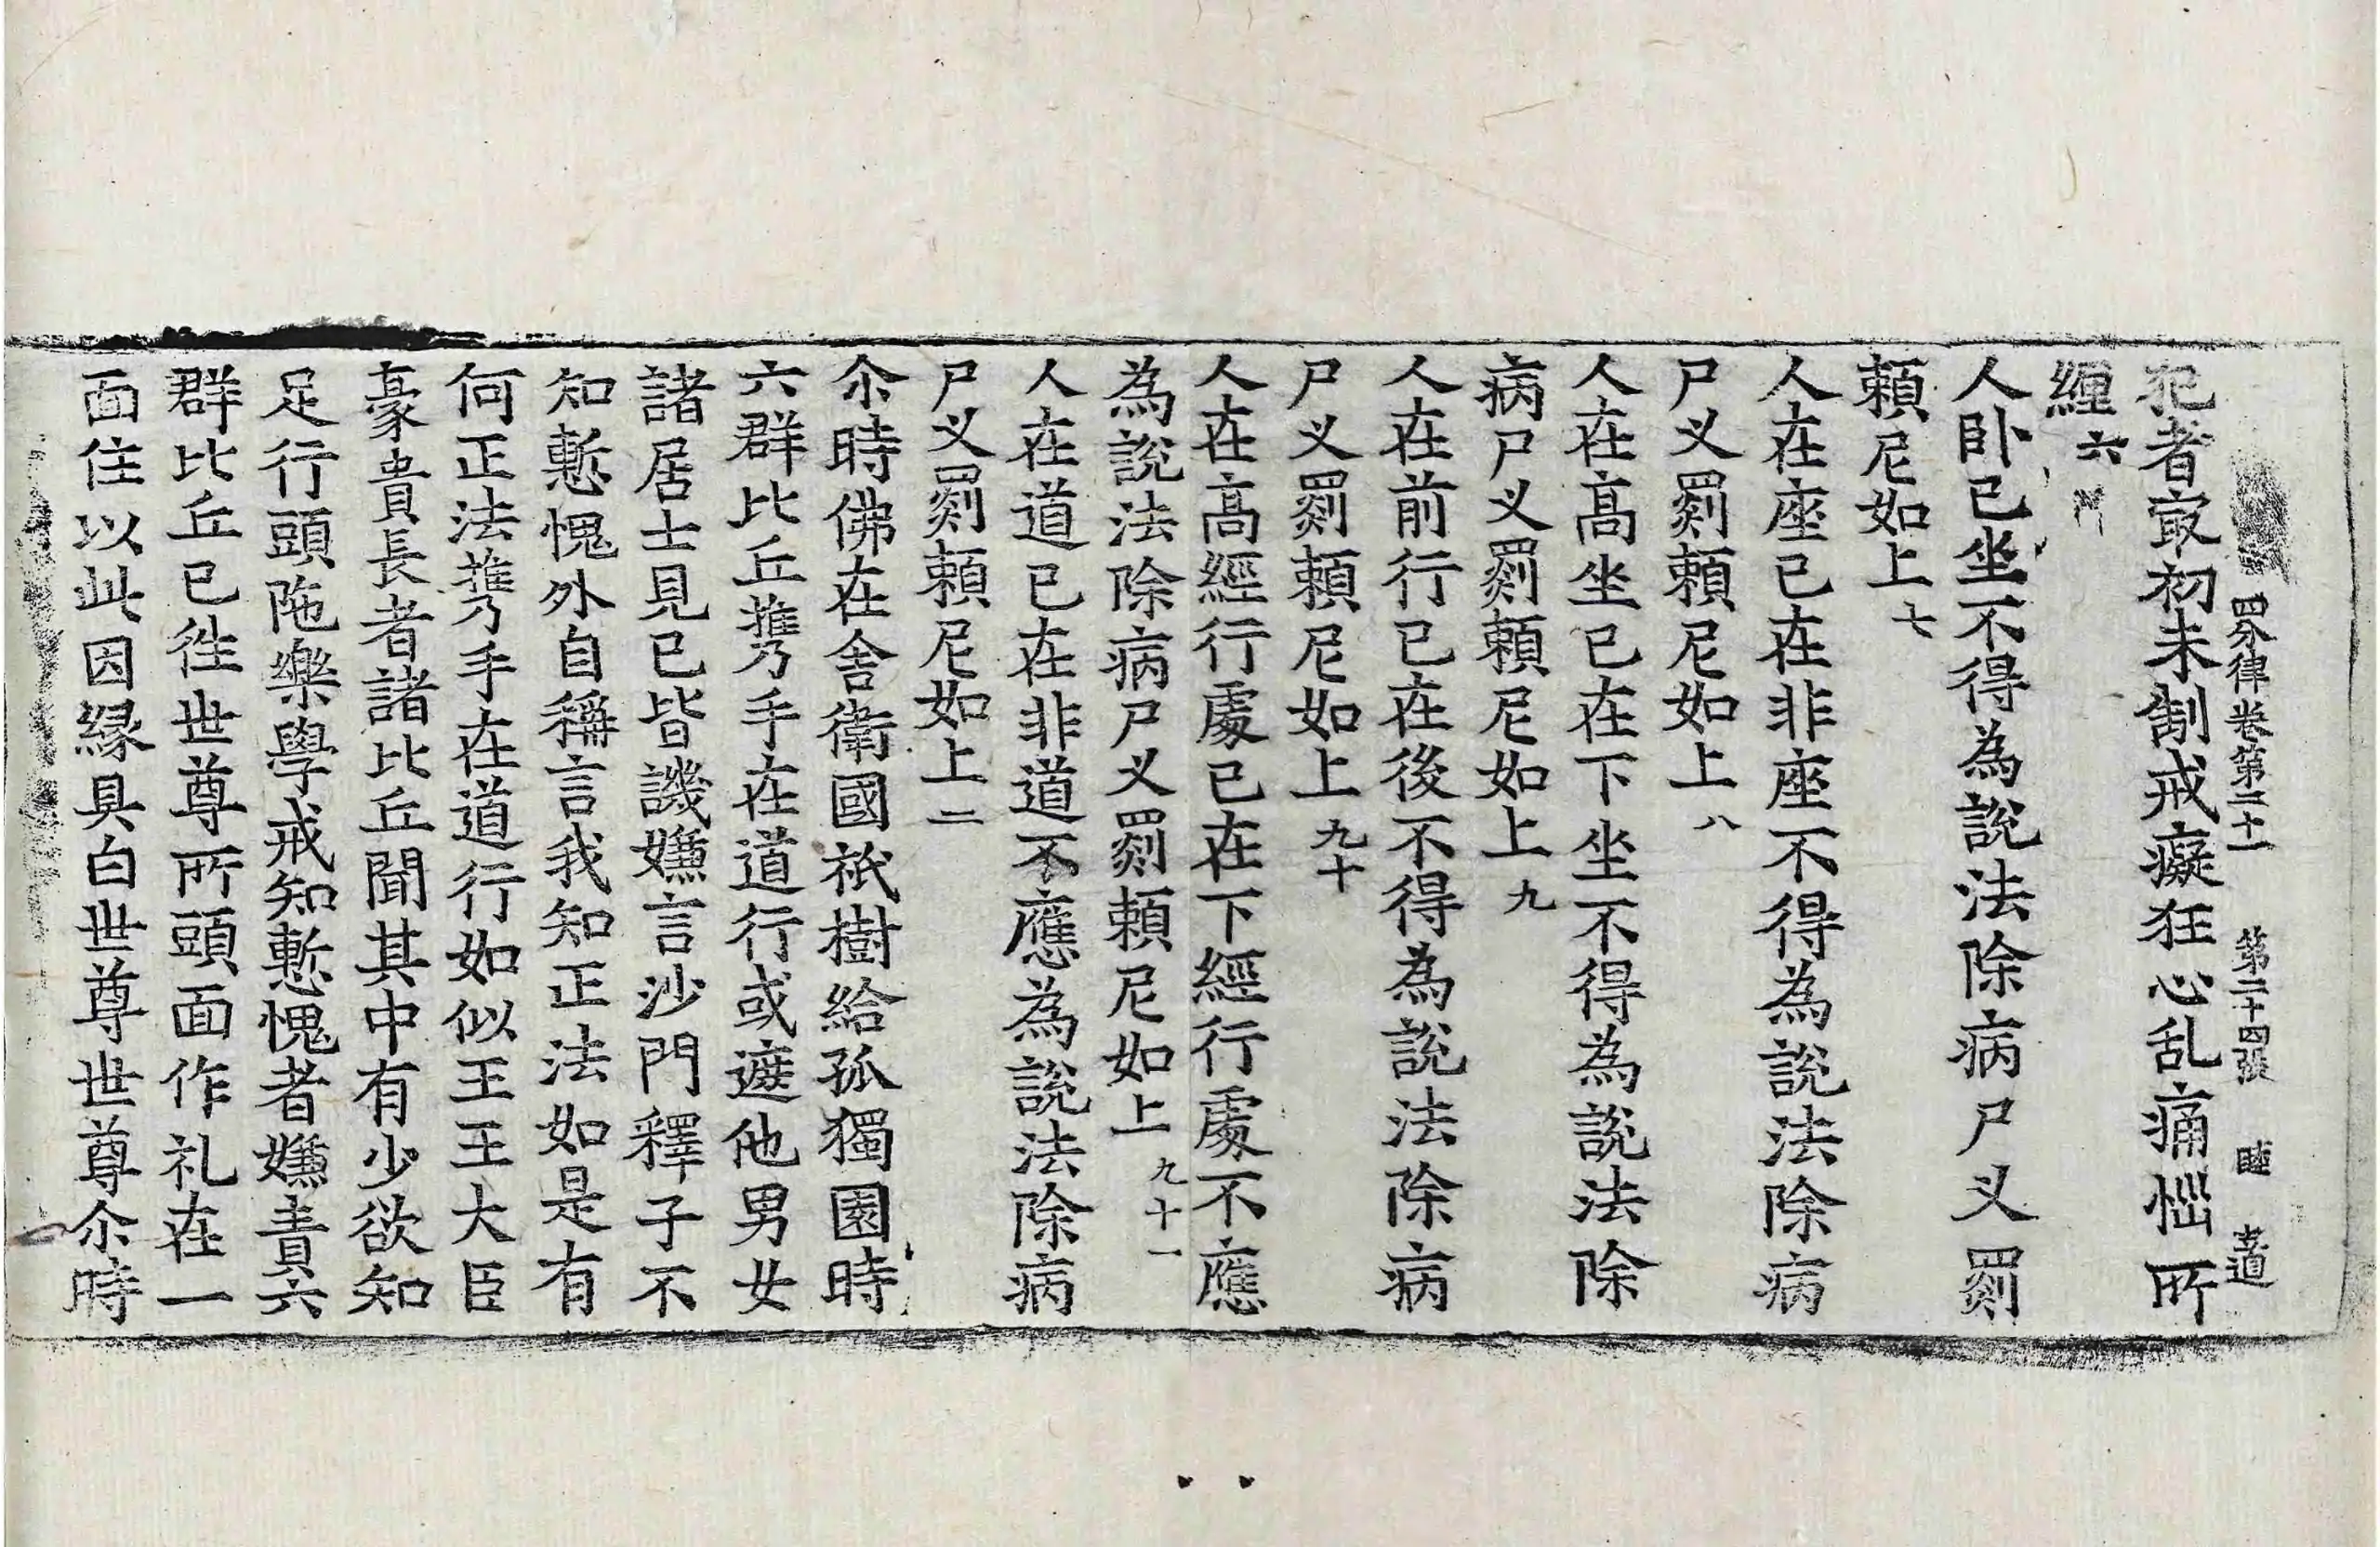 四分律卷第二十一 第二十四張 睦 志道
犯者㝡初未制戒癡狂心乱痛惱所
纏六
人卧已坐不得為說法除病尸叉罽
頼尼如上七
人在座已在非座不得為說法除病
尸叉罽頼尼如上八
人在髙坐已在下坐不得為說法除
病尸叉罽頼尼如上九
人在前行已在後不得為說法除病
尸叉罽頼尼如上九十
人在髙經行處已在下經行處不應
為說法除病尸叉罽頼尼如上九十一
人在道已在非道不應為說法除病
尸叉罽頼尼如上二
尒時佛在舍衛國祇樹給孤獨園時
六群比丘擕手在道行或遮他男女
諸居士見已皆譏嫌言沙門釋子不
知慙愧外自稱言我知正法如是有
何正法擕手在道行如似王王大臣
豪貴長者諸比丘聞其中有少欲知
足行頭陁樂學戒知慙愧者嫌責六
群比丘已徃世尊所頭面作礼在一
面住以此因縁具白世尊世尊尒時